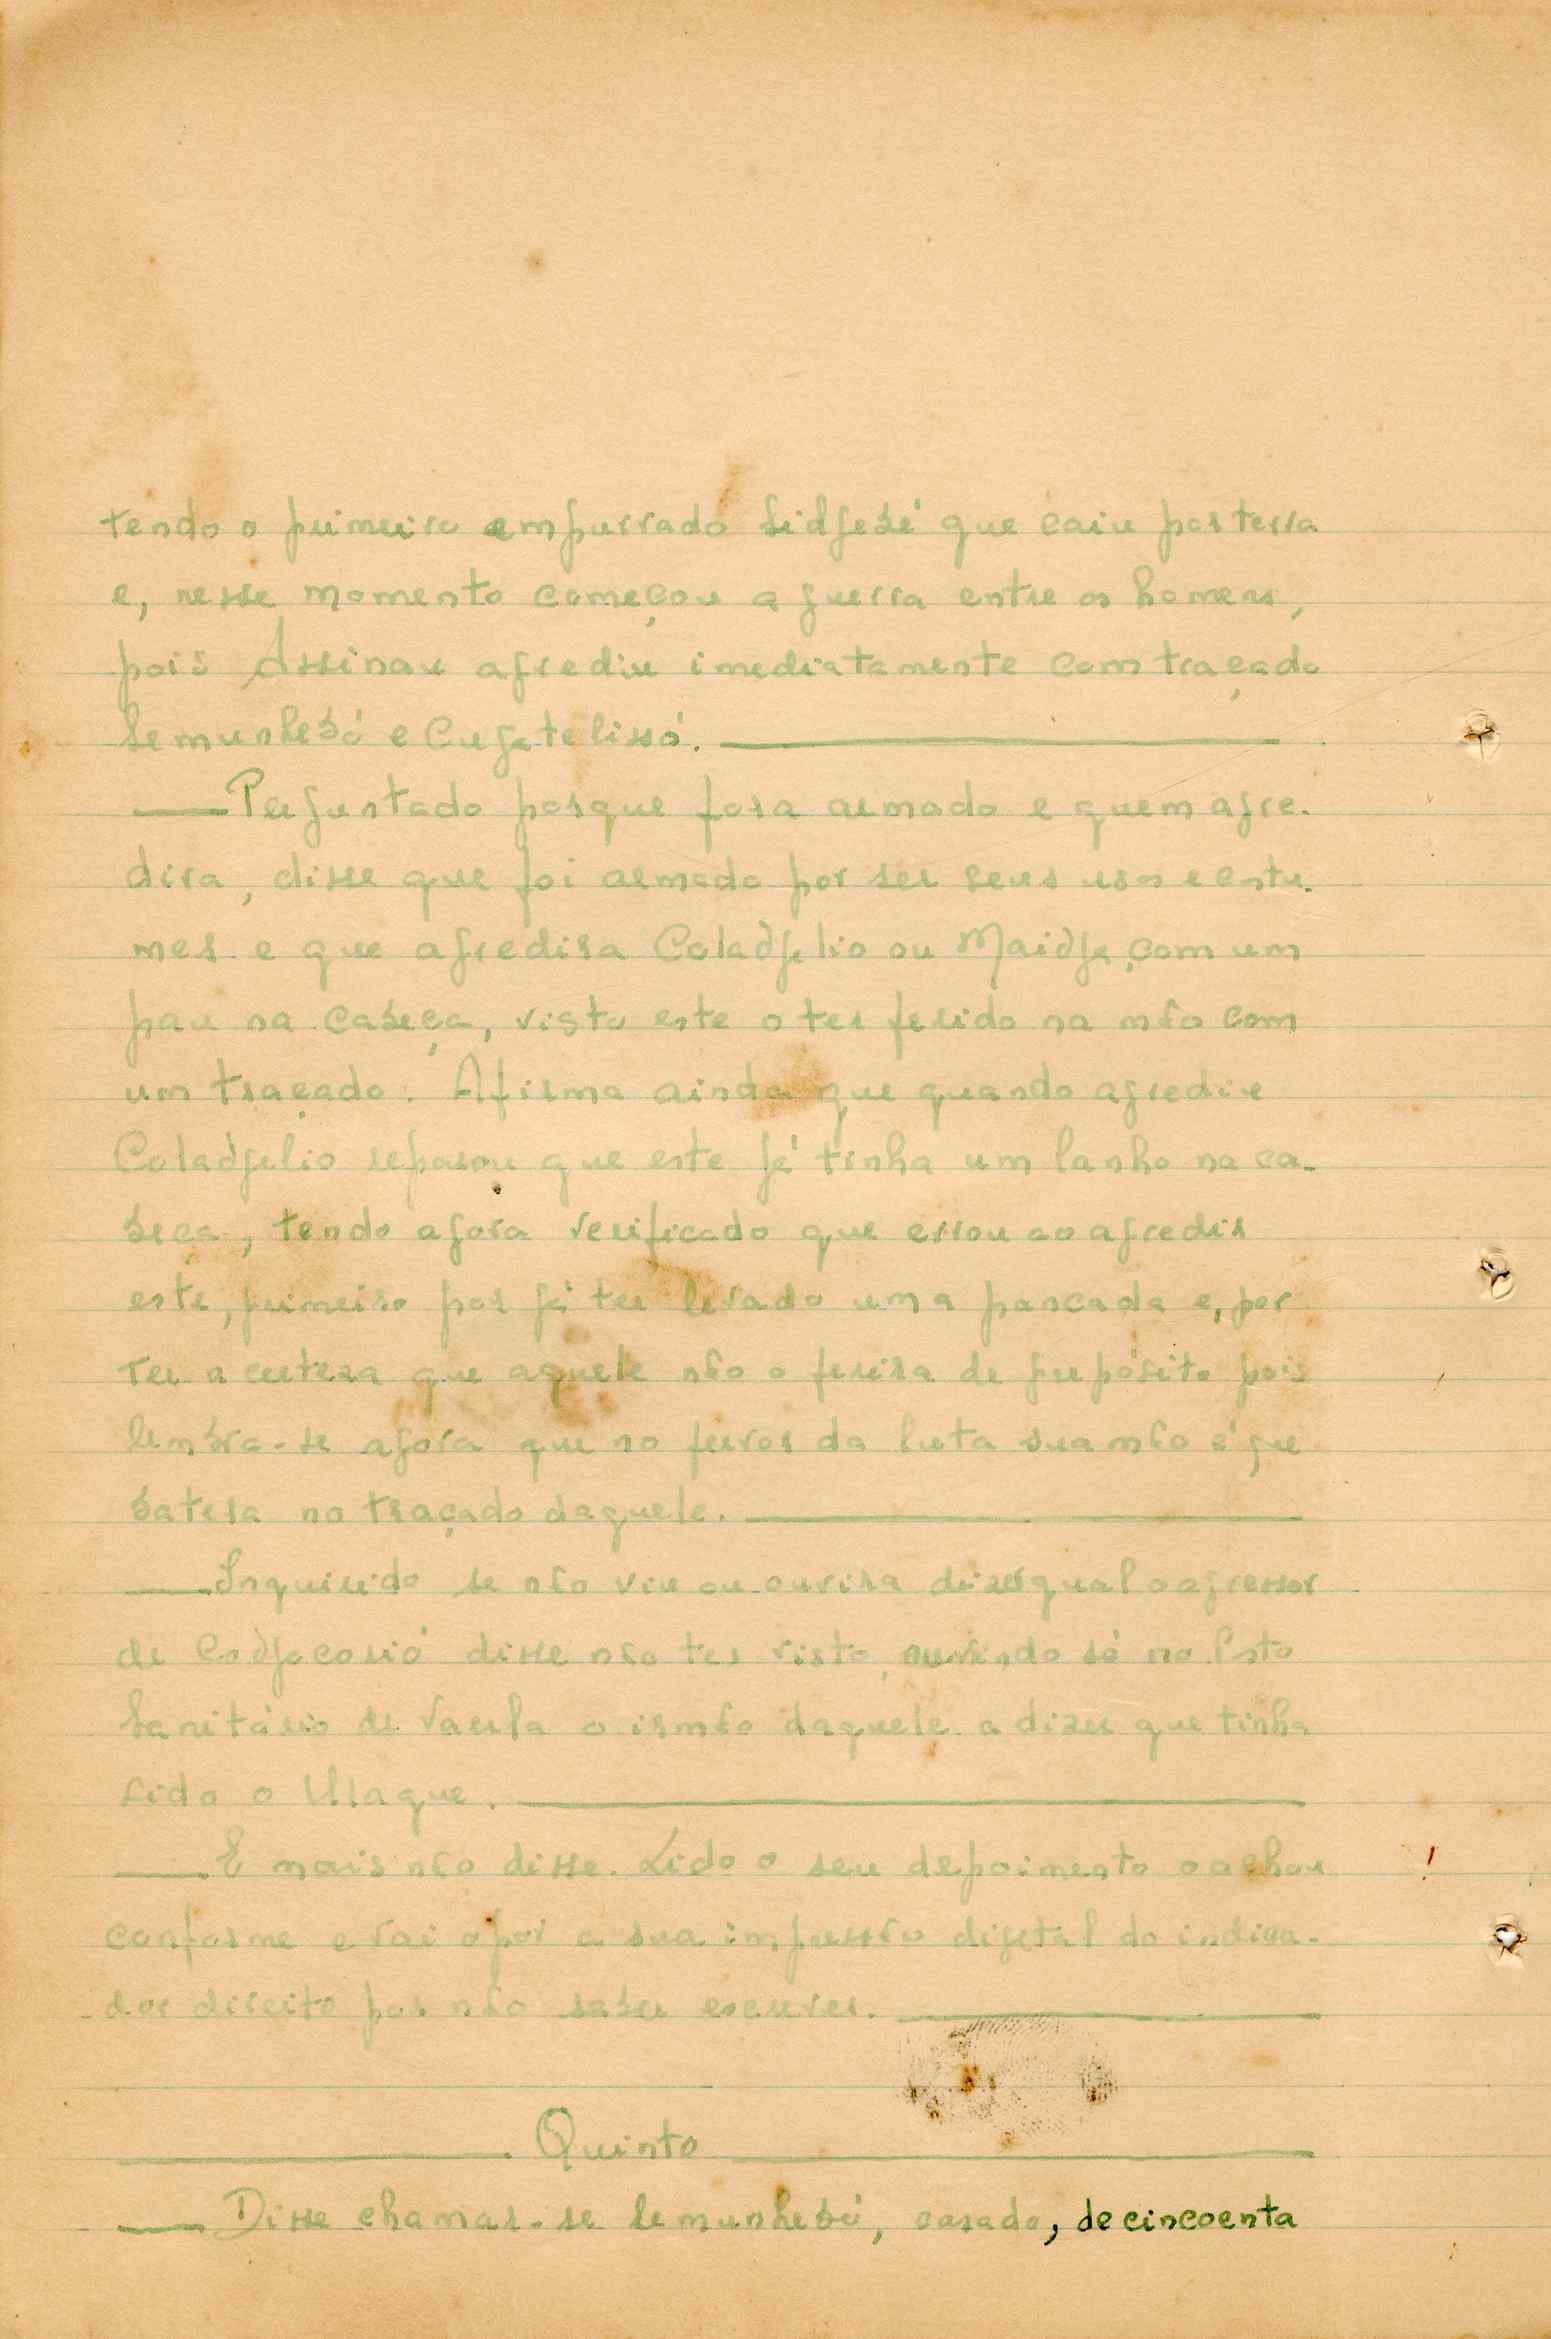 tendo o primeiro empurrado Sidjebé que caiu por terra
e, nesse momento começou a guerra entre os homens,
pois Assinau agrediu imediatamente com traçado
Semunhebó e Cugatelissó.
Perguntado porque fora armado e quem agre-
dira, disse que foi armado por ser seus usos e costu-
mes e que agredira Coladjelio ou Maidja, com um
pau na cabeça, visto este o ter ferido na mão com
um traçado. Afirma ainda que quando agrediu
Coladjelio reparou que este já tinha um lanho na ca-
beça, tendo agora verificado que errou ao agredir
este, primeiro por já ter levado uma pancada e, por
ter a certeza que aquele não o ferira de propósito pois
lembra-se agora que no fervor da luta sua mão é que
batera no traçado daquele.
Inquirido se não viu ou ouvira dizer qual o agressor
de Codjacorió disse não ter visto, ouvindo só no Posto
Sanitário de Varela o irmão daquele a dizer que tinha
sido o Ulaque.
E mais não disse. Lido o seu depoimento o achou
conforme e vai opôr a sua impressão digital do indica-
dor direito por não saber escrever.
Quinto
Disse chamar-se Semunhebó, casado, de cincoenta